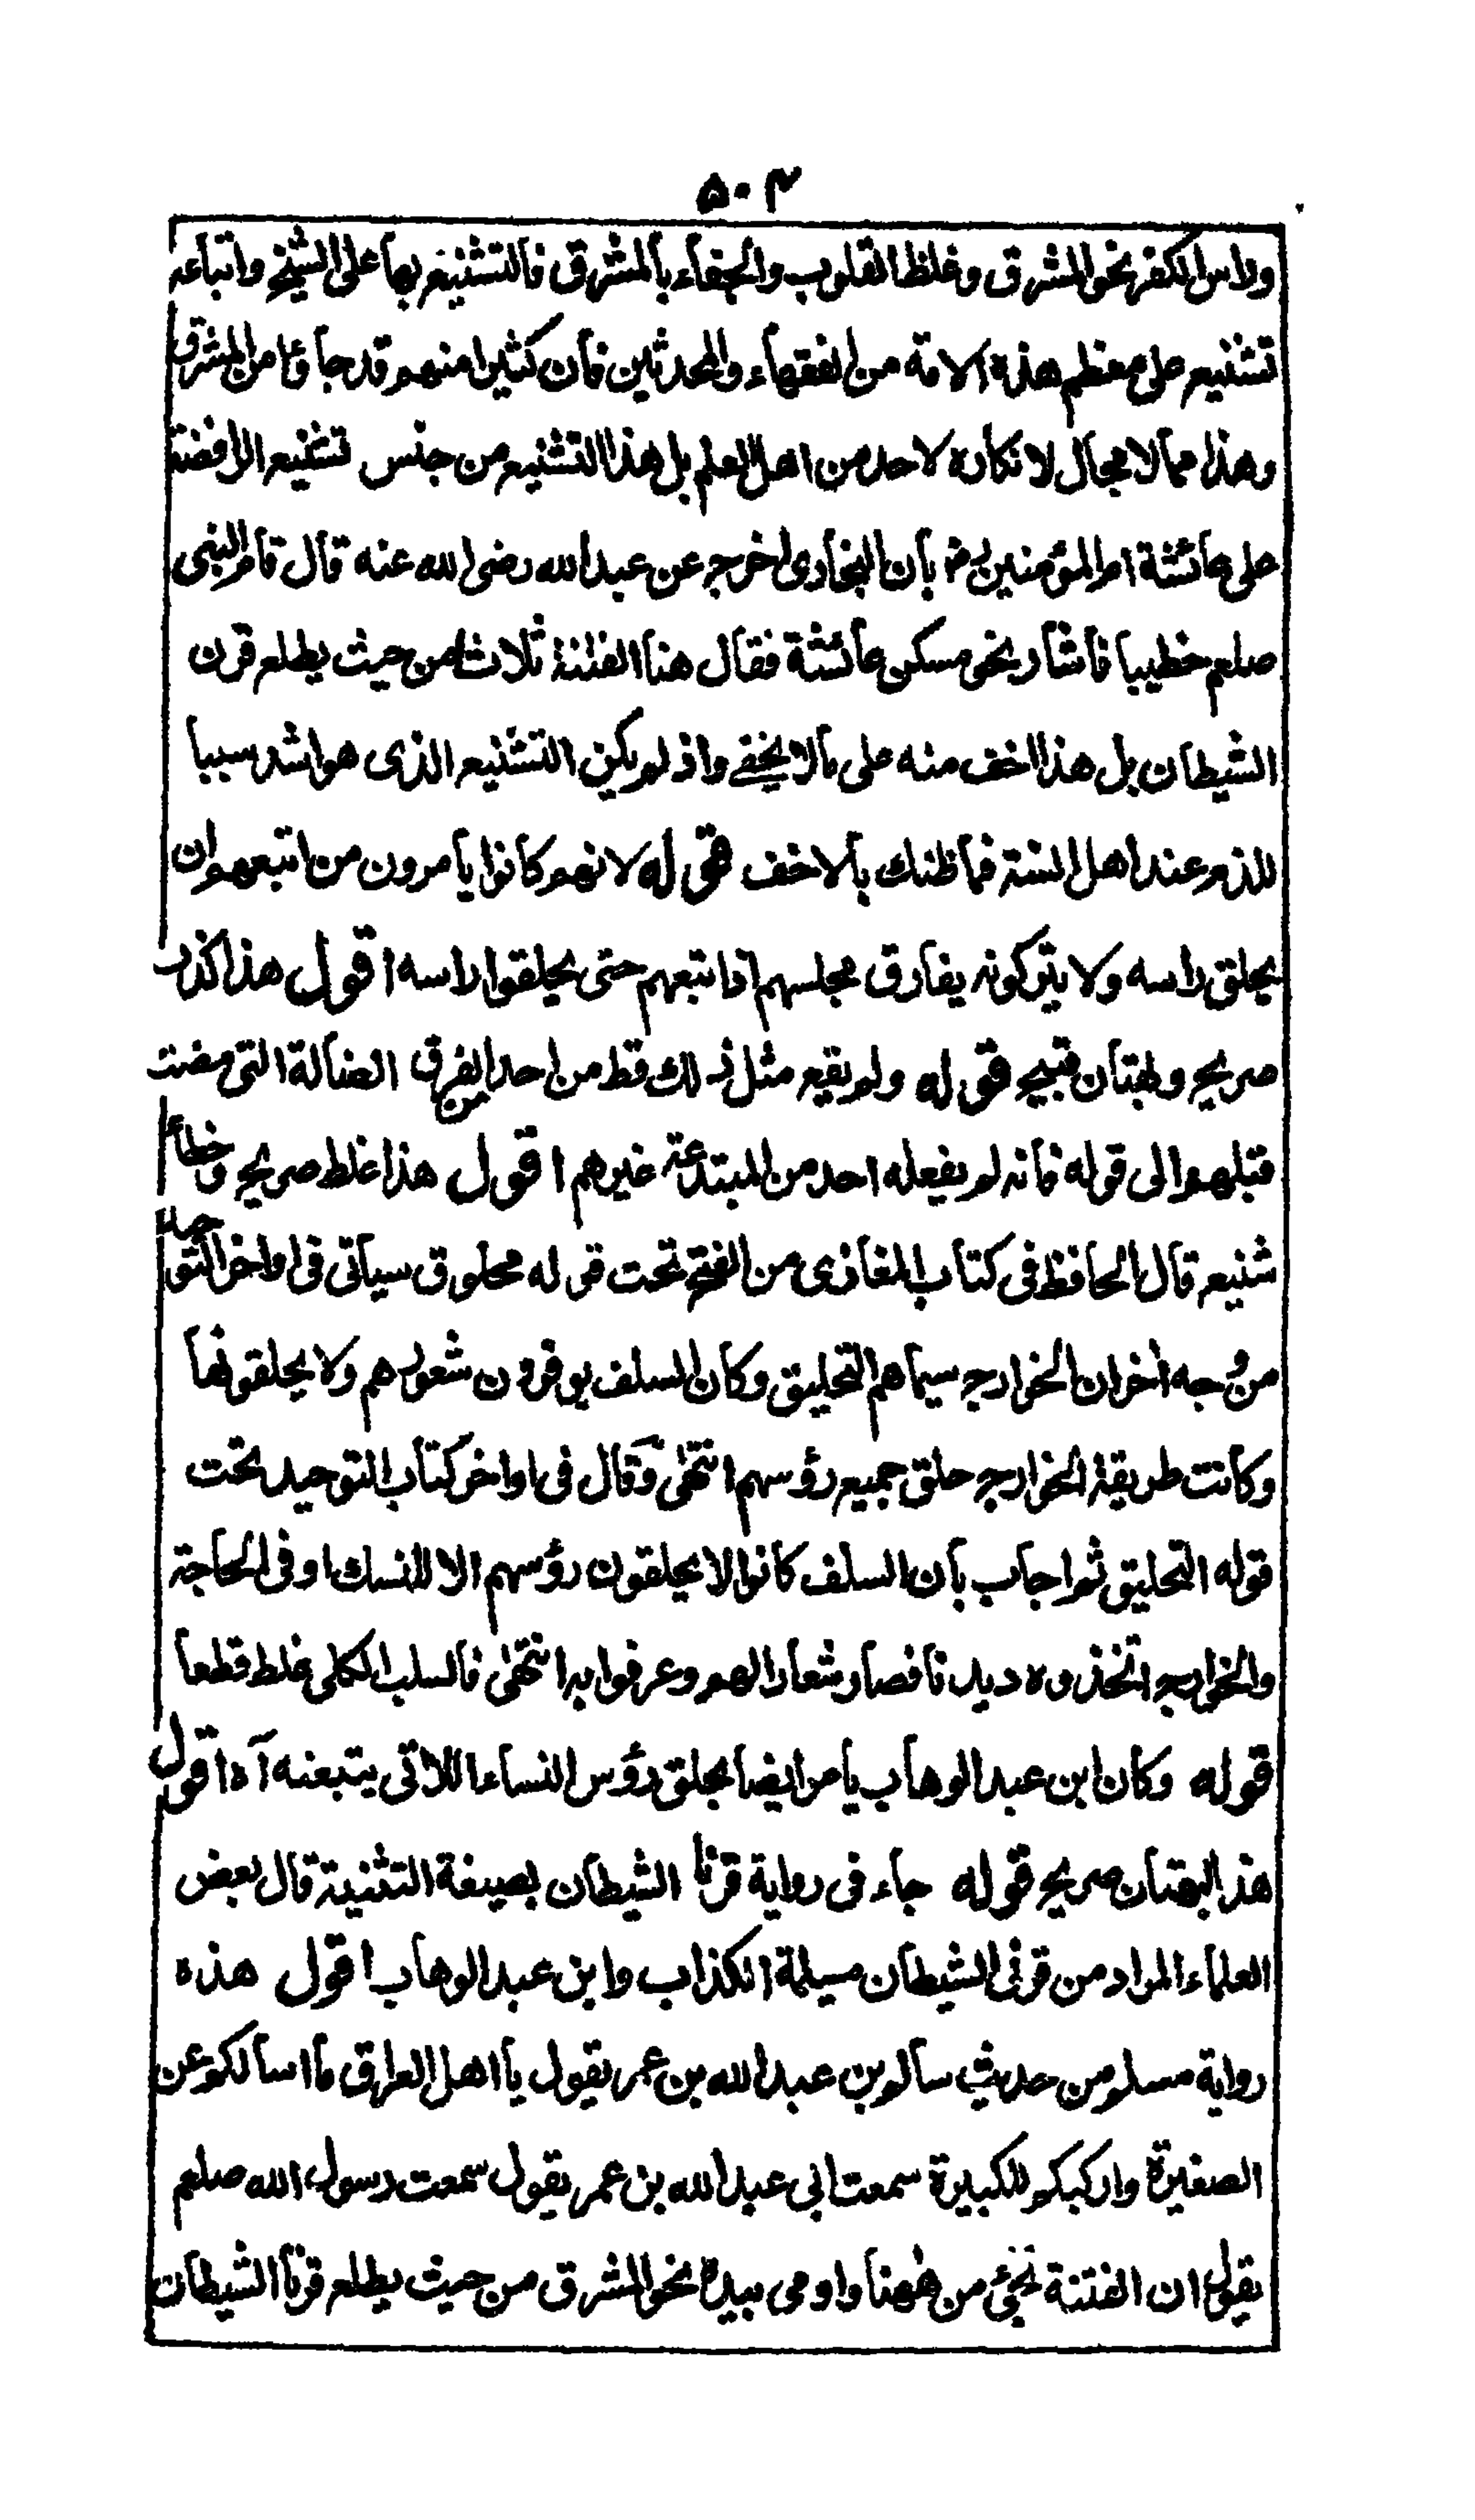 ۵۰۳
وراس الكفر نحو المشرق وغلظ القلوب والجفاء بالمشرق فالتشنيع بها على الشيخ واتباعه
تشنيع على معظم هذه الامة من الفقهاء والمحدثين فان كثيرا منهم قد جاؤا من المشرق
وهذا مما لا مجال لانكاره لاحد من اهل العلم بل هذا التشنيع من جنس تشنيع الرافضة
على عائشة ام المؤمنين رض بان البخارى اخرج عن عبد الله رضى الله عنه قال قام النبى
صلعم خطيبا فاشار نحو مسكن عائشة فقال هنا الفتنة ثلاثا من حيث يطلع قرن
الشيطان بل هذا اخف منه على ما لا يخفى واذ لم يكن التشنيع الذى هو اشد سببا
للذم عند اهل السنة فما ظنك بالاخف قوله لانهم كانوا يأمرون من اتبعهم ان
يحلق راسه ولا يتركونه يفارق مجلسهم اذا تبعهم حتى يحلقوا راسه اقول هذا كذب
صريح وبهتان قبيح قوله ولم يقع مثل ذلك قط من احد من الفرق الضالة التى مضت
قبلهم الى قوله فانه لم يفعله احد من المبتدعة غيرهم اقول هذا غلط صريح وخطأ
شنيع قال الحافظ فى كتاب المغازى من الفتح تحت قوله محلوق سيأتى فى اواخر التوحيد
من وجه اخر ان الخوارج سيماهم التحليق وكان السلف يوفرون شعورهم ولا يحلقونها
وكانت طريقة الخوارج حلق جميع رؤسهم انتهى وقال فى اواخر كتاب التوحيد تحت
قوله التحليق ثم اجاب بأن السلف كانوا لا يحلقون رؤسهم الا للنسك او فى الحاجة
والخوارج اتخذوه ديدنا فصار شعارا لهم وعرفوا به انتهى فالسلب الكلى غلط قطعا
قوله وكان ابن عبد الوهاب يأمر ايضا بحلق رؤس النساء اللاتى يتبعنه آه اقول
هذا البهتان صريح قوله جاء فى رواية قرنا الشيطان بصيغة التثنية قال بعض
العلماء المراد من قرنى الشيطان مسيلمة الكذاب وابن عبد الوهاب اقول هذه
رواية مسلم من حديث سالم بن عبد الله بن عمر يقول يا اهل العراق ما اسألكم عن
الصغيرة واركبكم للكبيرة سمعت ابى عبد الله بن عمر يقول سمعت رسول الله صلعم
يقول ان الفتنة تجئ من ههنا واومى بيده نحو المشرق من حيث يطلع قرنا الشيطان